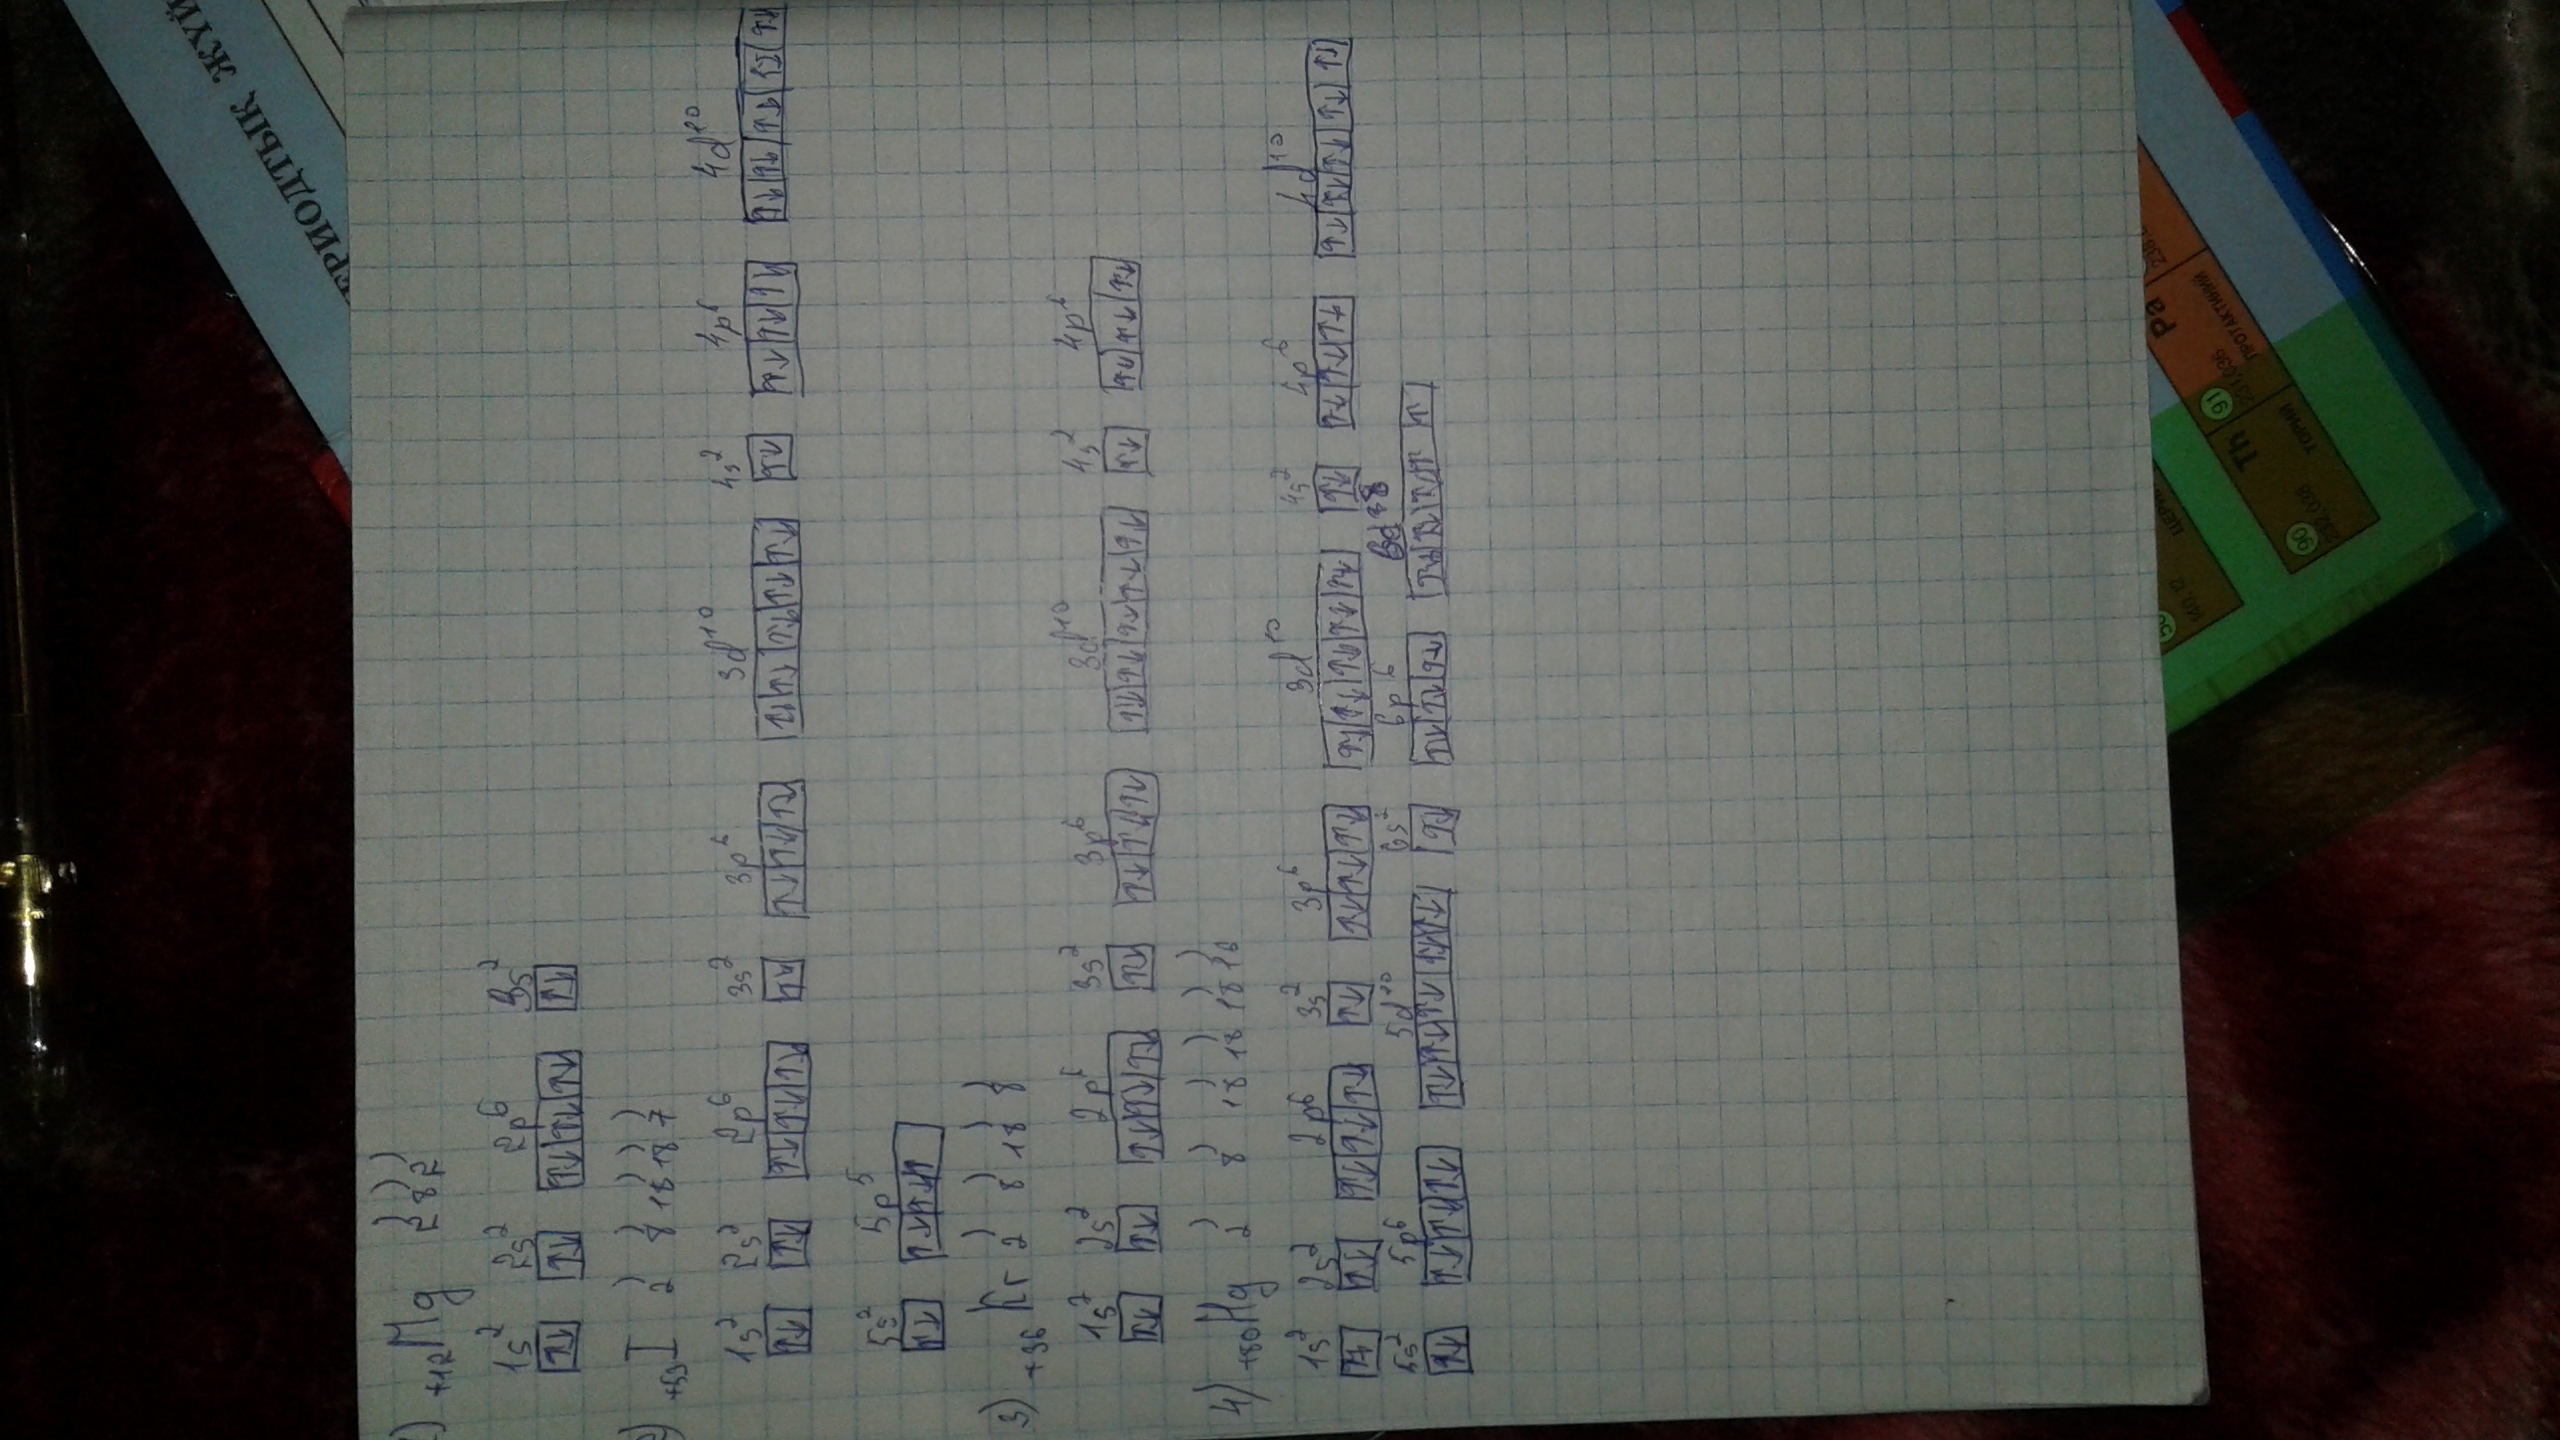 1) +12Mg 2) 8) 2)
1s² 2s² 2p⁶ 3s²
2) +53I 2) 8) 18) 18) 7)
1s² 2s² 2p⁶ 3s² 3p⁶ 3d¹⁰ 4s² 4p⁶ 4d¹⁰
5s² 5p⁵
3) +36Kr 2) 8) 18) 8)
1s² 2s² 2p⁶ 3s² 3p⁶ 3d¹⁰ 4s² 4p⁶
4) +80Hg 2) 8) 18) 18) 18) 16)
1s² 2s² 2p⁶ 3s² 3p⁶ 3d¹⁰ 4s² 4p⁶ 4d¹⁰
5s² 5p⁶ 5d¹⁰ 6s² 6p⁶ 6d⁸
ЕРИОДТЫҚ ЖҮЙ
Th
90
ТОРИЙ
232,038
Pa
91
ПРОТАКТИНИЙ
231,036
140,12
238,